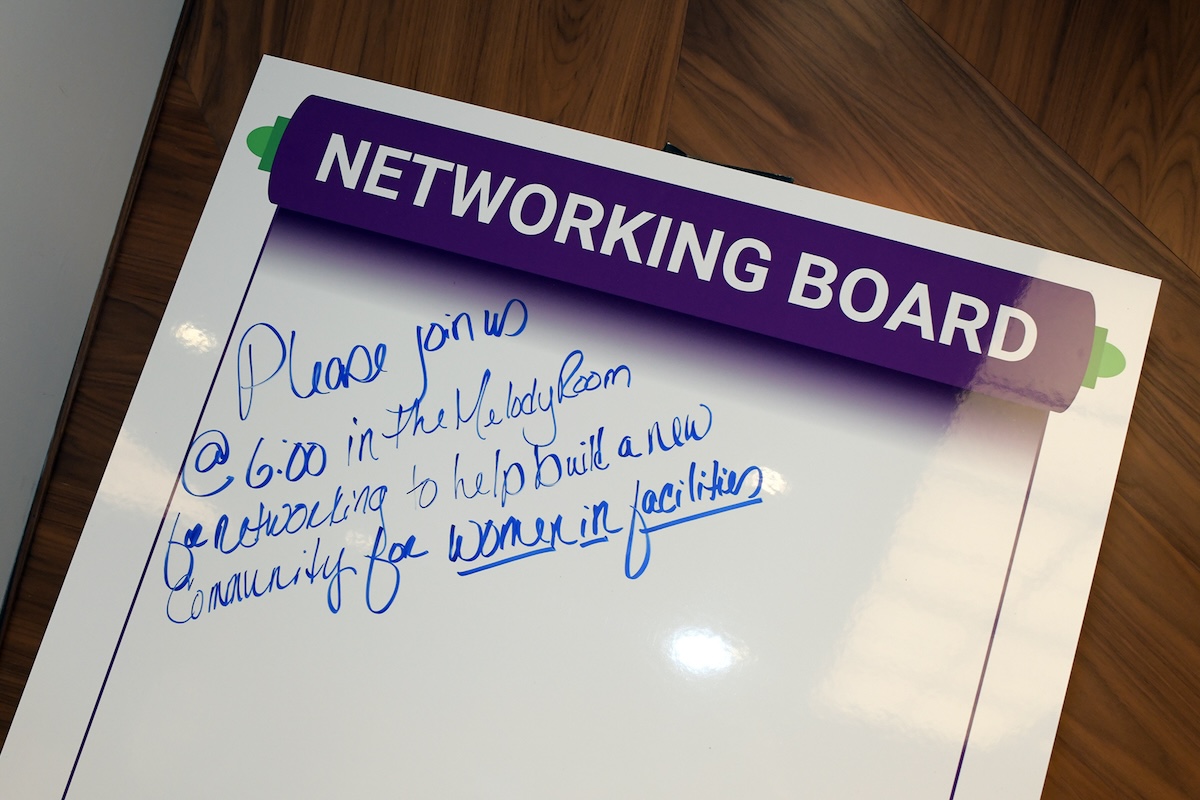 NETWORKING BOARD
Please join us
@ 6:00 in the Melody Room
for networking to help build a new
Community for women in facilities